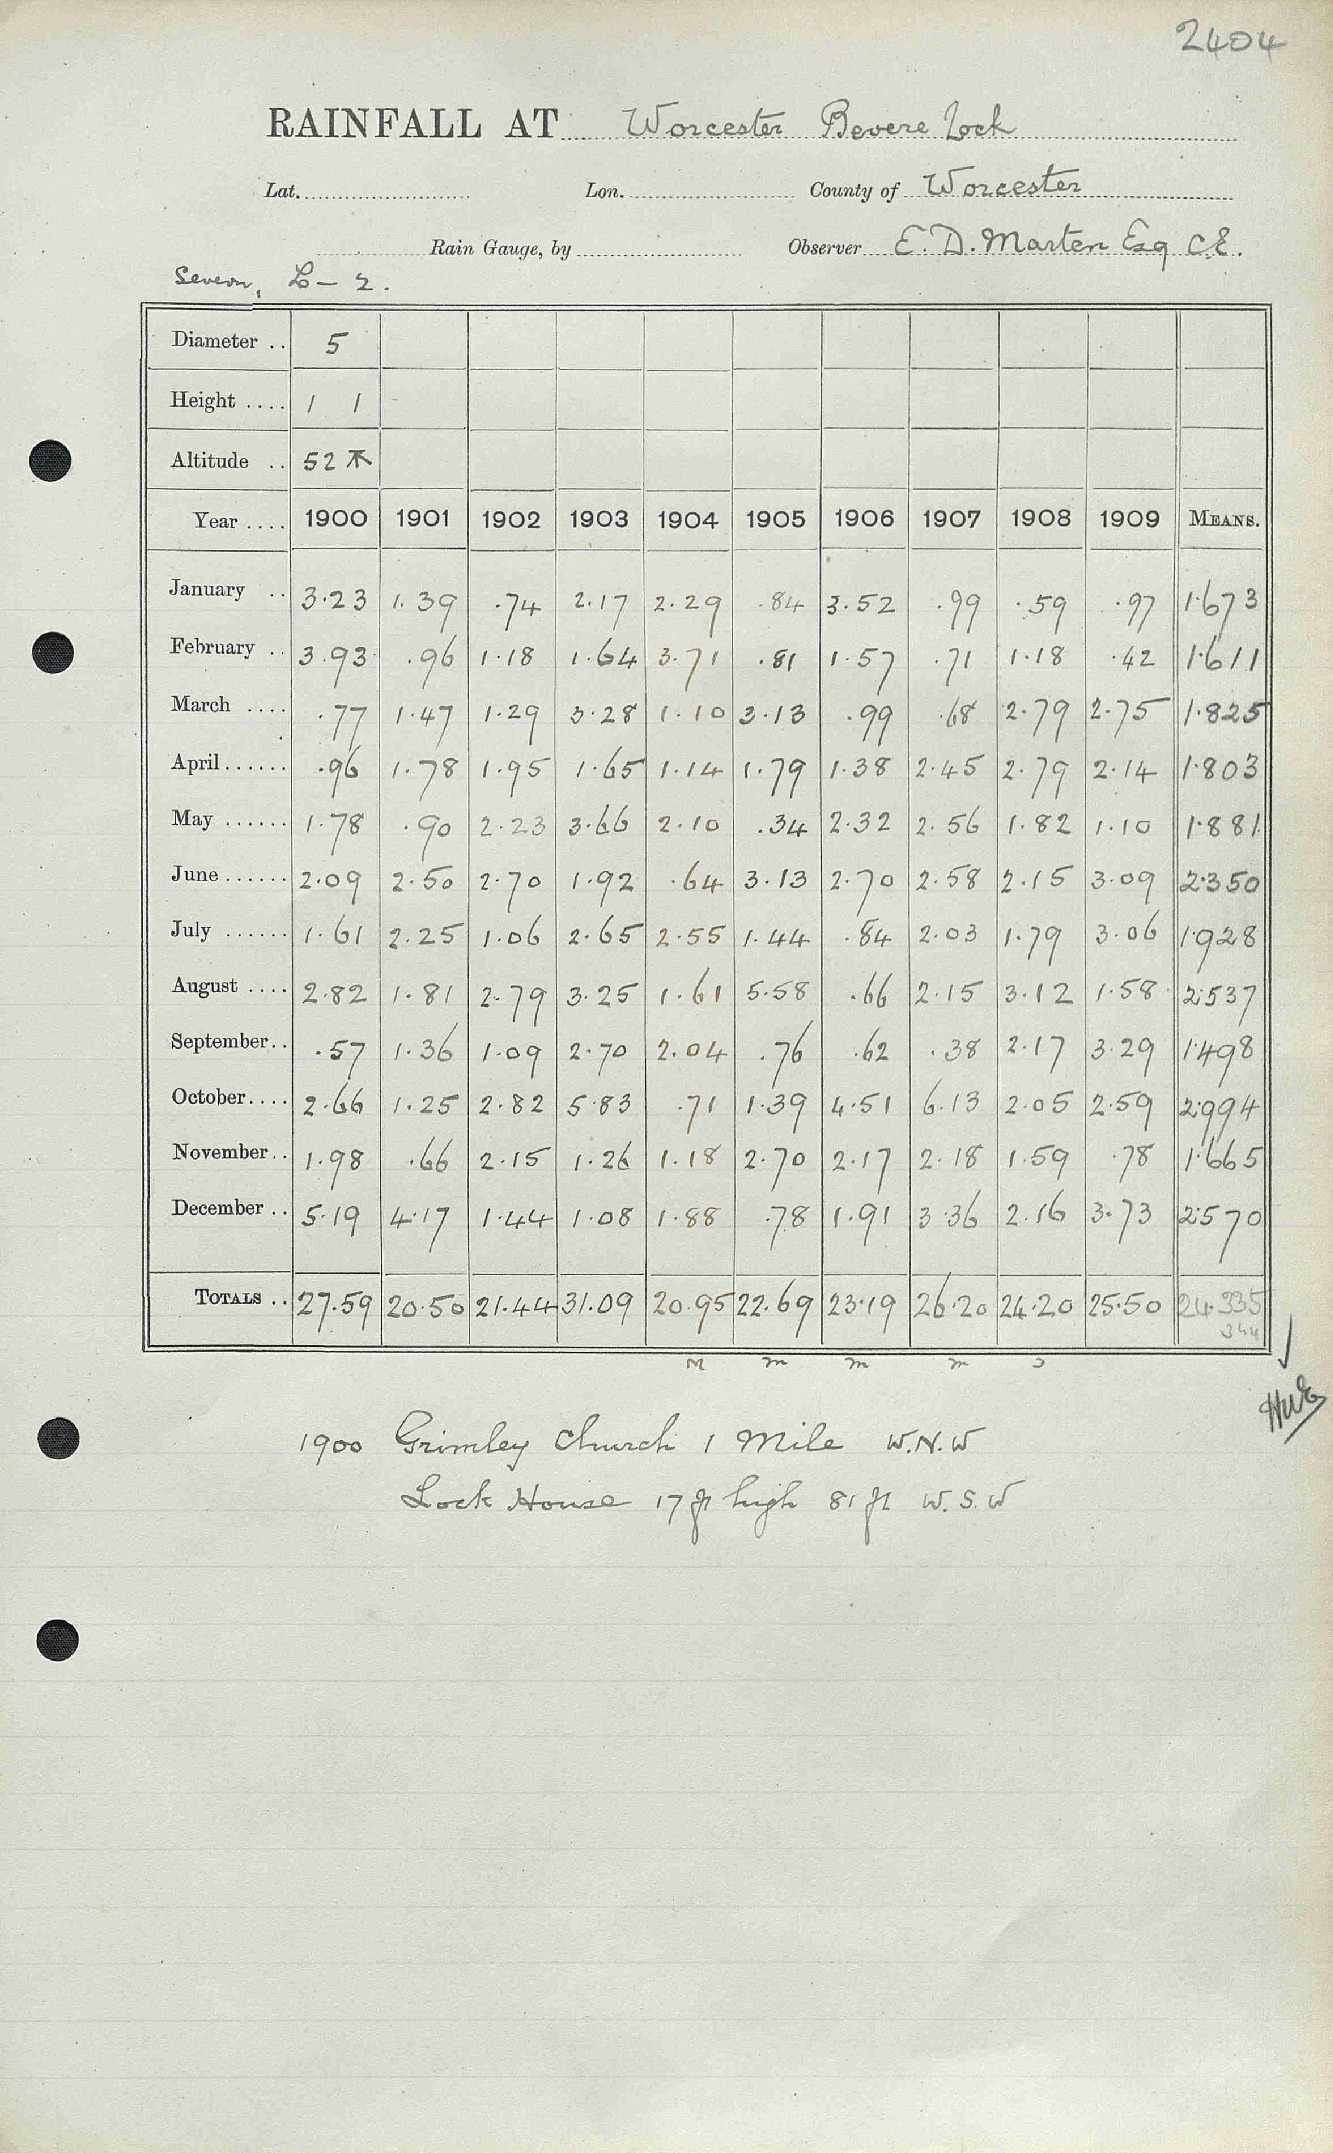 2404
RAINFALL AT Worcester Bevere Lock
Lat. Lon. County of Worcester
Rain Gauge, by Observer E. D. Marten Esq C.E.
Severn, L – 2.
Diameter .. 5
Height .... 1 1
Altitude .. 52
Year .... 1900 1901 1902 1903 1904 1905 1906 1907 1908 1909 MEANS.
January .. 3.23 1.39 .74 2.17 2.29 .84 3.52 .99 .59 .97 1.673
February .. 3.93 .96 1.18 1.64 3.71 .81 1.57 .71 1.18 .42 1.611
March .... .77 1.47 1.29 3.28 1.10 3.13 .99 .68 2.79 2.75 1.825
April ...... .96 1.78 1.95 1.65 1.14 1.79 1.38 2.45 2.79 2.14 1.803
May ...... 1.78 .90 2.23 3.66 2.10 .34 2.32 2.56 1.82 1.10 1.881
June ...... 2.09 2.50 2.70 1.92 .64 3.13 2.70 2.58 2.15 3.09 2.350
July ...... 1.61 2.25 1.06 2.65 2.55 1.44 .84 2.03 1.79 3.06 1.928
August .... 2.82 1.81 2.79 3.25 1.61 5.58 .66 2.15 3.12 1.58 2.537
September .. .57 1.36 1.09 2.70 2.04 .76 .62 .38 2.17 3.29 1.498
October .... 2.66 1.25 2.82 5.83 .71 1.39 4.51 6.13 2.05 2.59 2.994
November .. 1.98 .66 2.15 1.26 1.18 2.70 2.17 2.18 1.59 .78 1.665
December .. 5.19 4.17 1.44 1.08 1.88 .78 1.91 3.36 2.16 3.73 2.570
TOTALS .. 27.59 20.50 21.44 31.09 20.95 22.69 23.19 26.20 24.20 25.50 24.335
344
M m m m
1900 Grimley Church 1 Mile W.N.W
Lock House 17 ft high 81 ft W.S.W